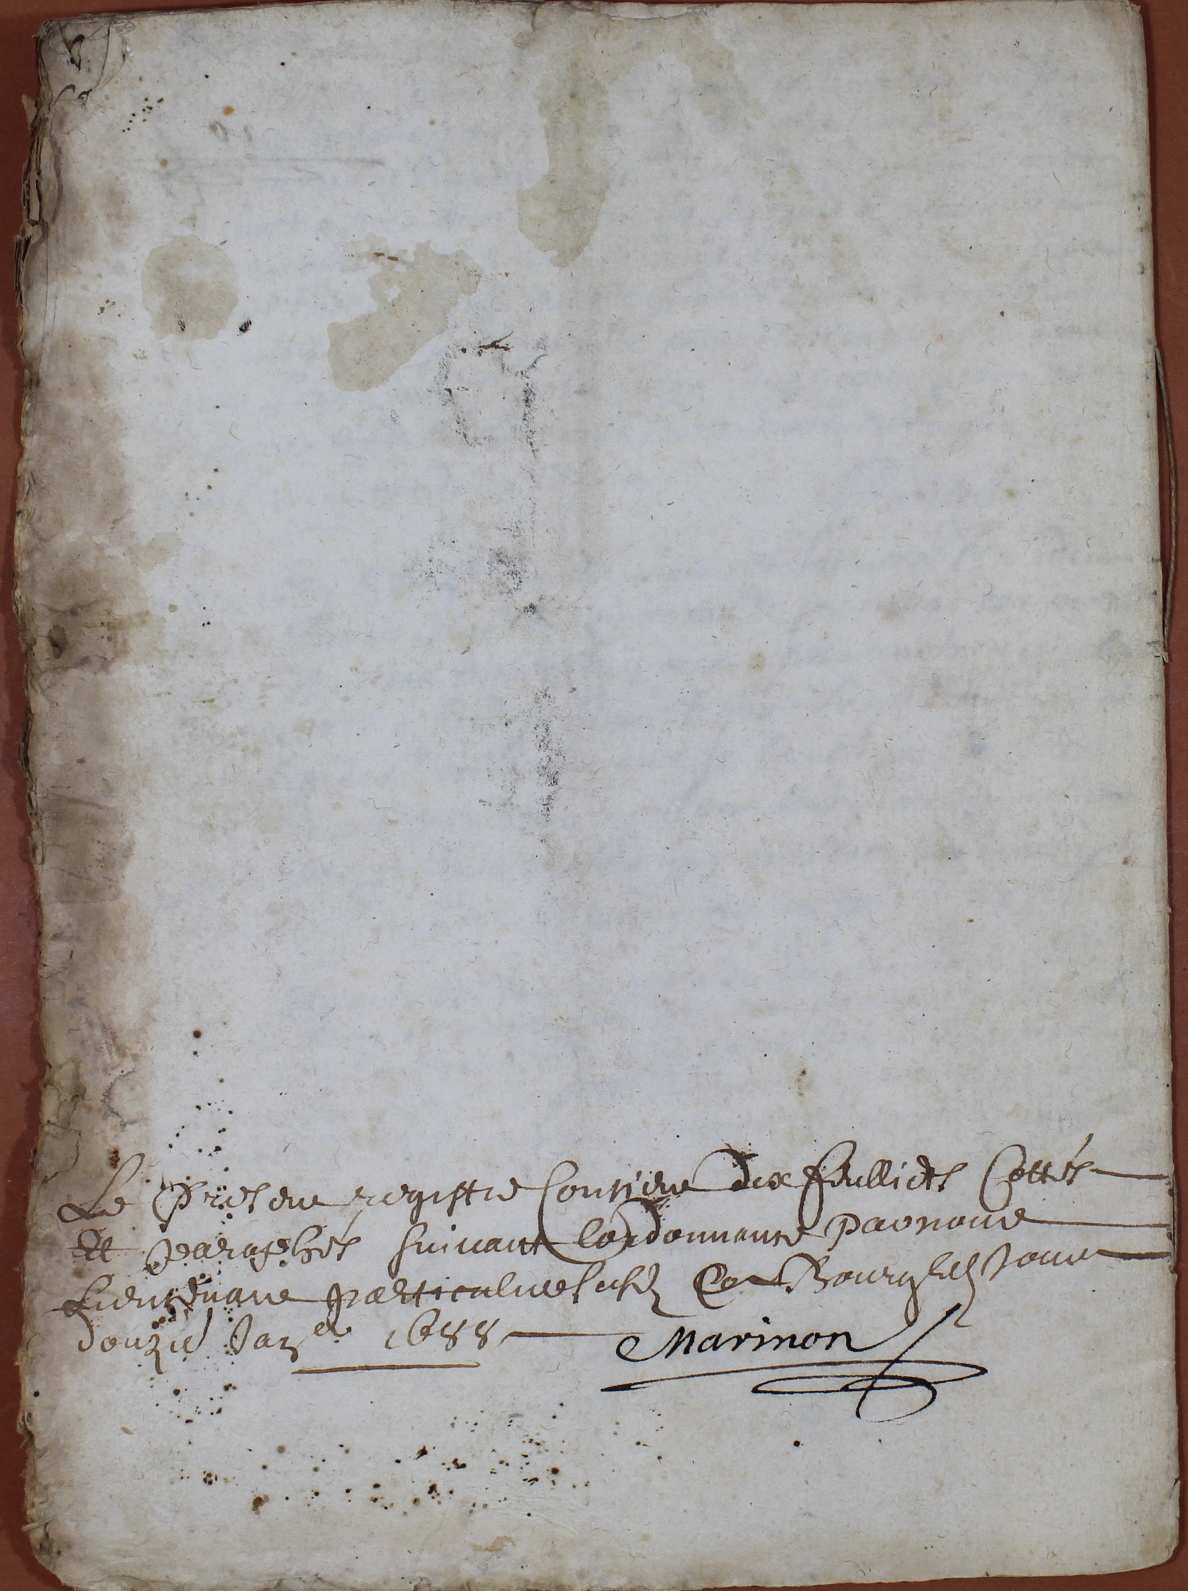 Le presene registre Contiene dix feulliets Cottés
Et paraphés suivant lordonnance par nous
Lieutenane particulier A Bourg
douzie Jaer 1688 Marinon